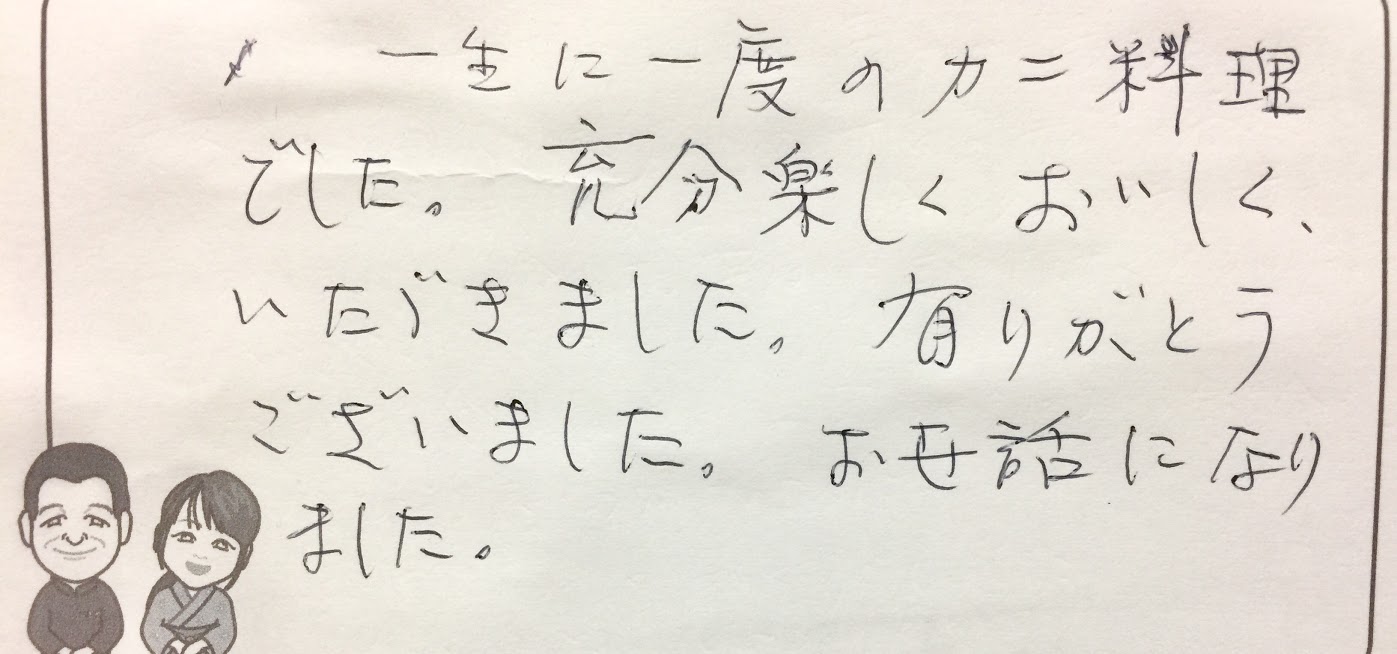 一生に一度のカニ料理
でした。充分楽しくおいしく、
いただきました。有りがとう
ございました。お世話になり
ました。